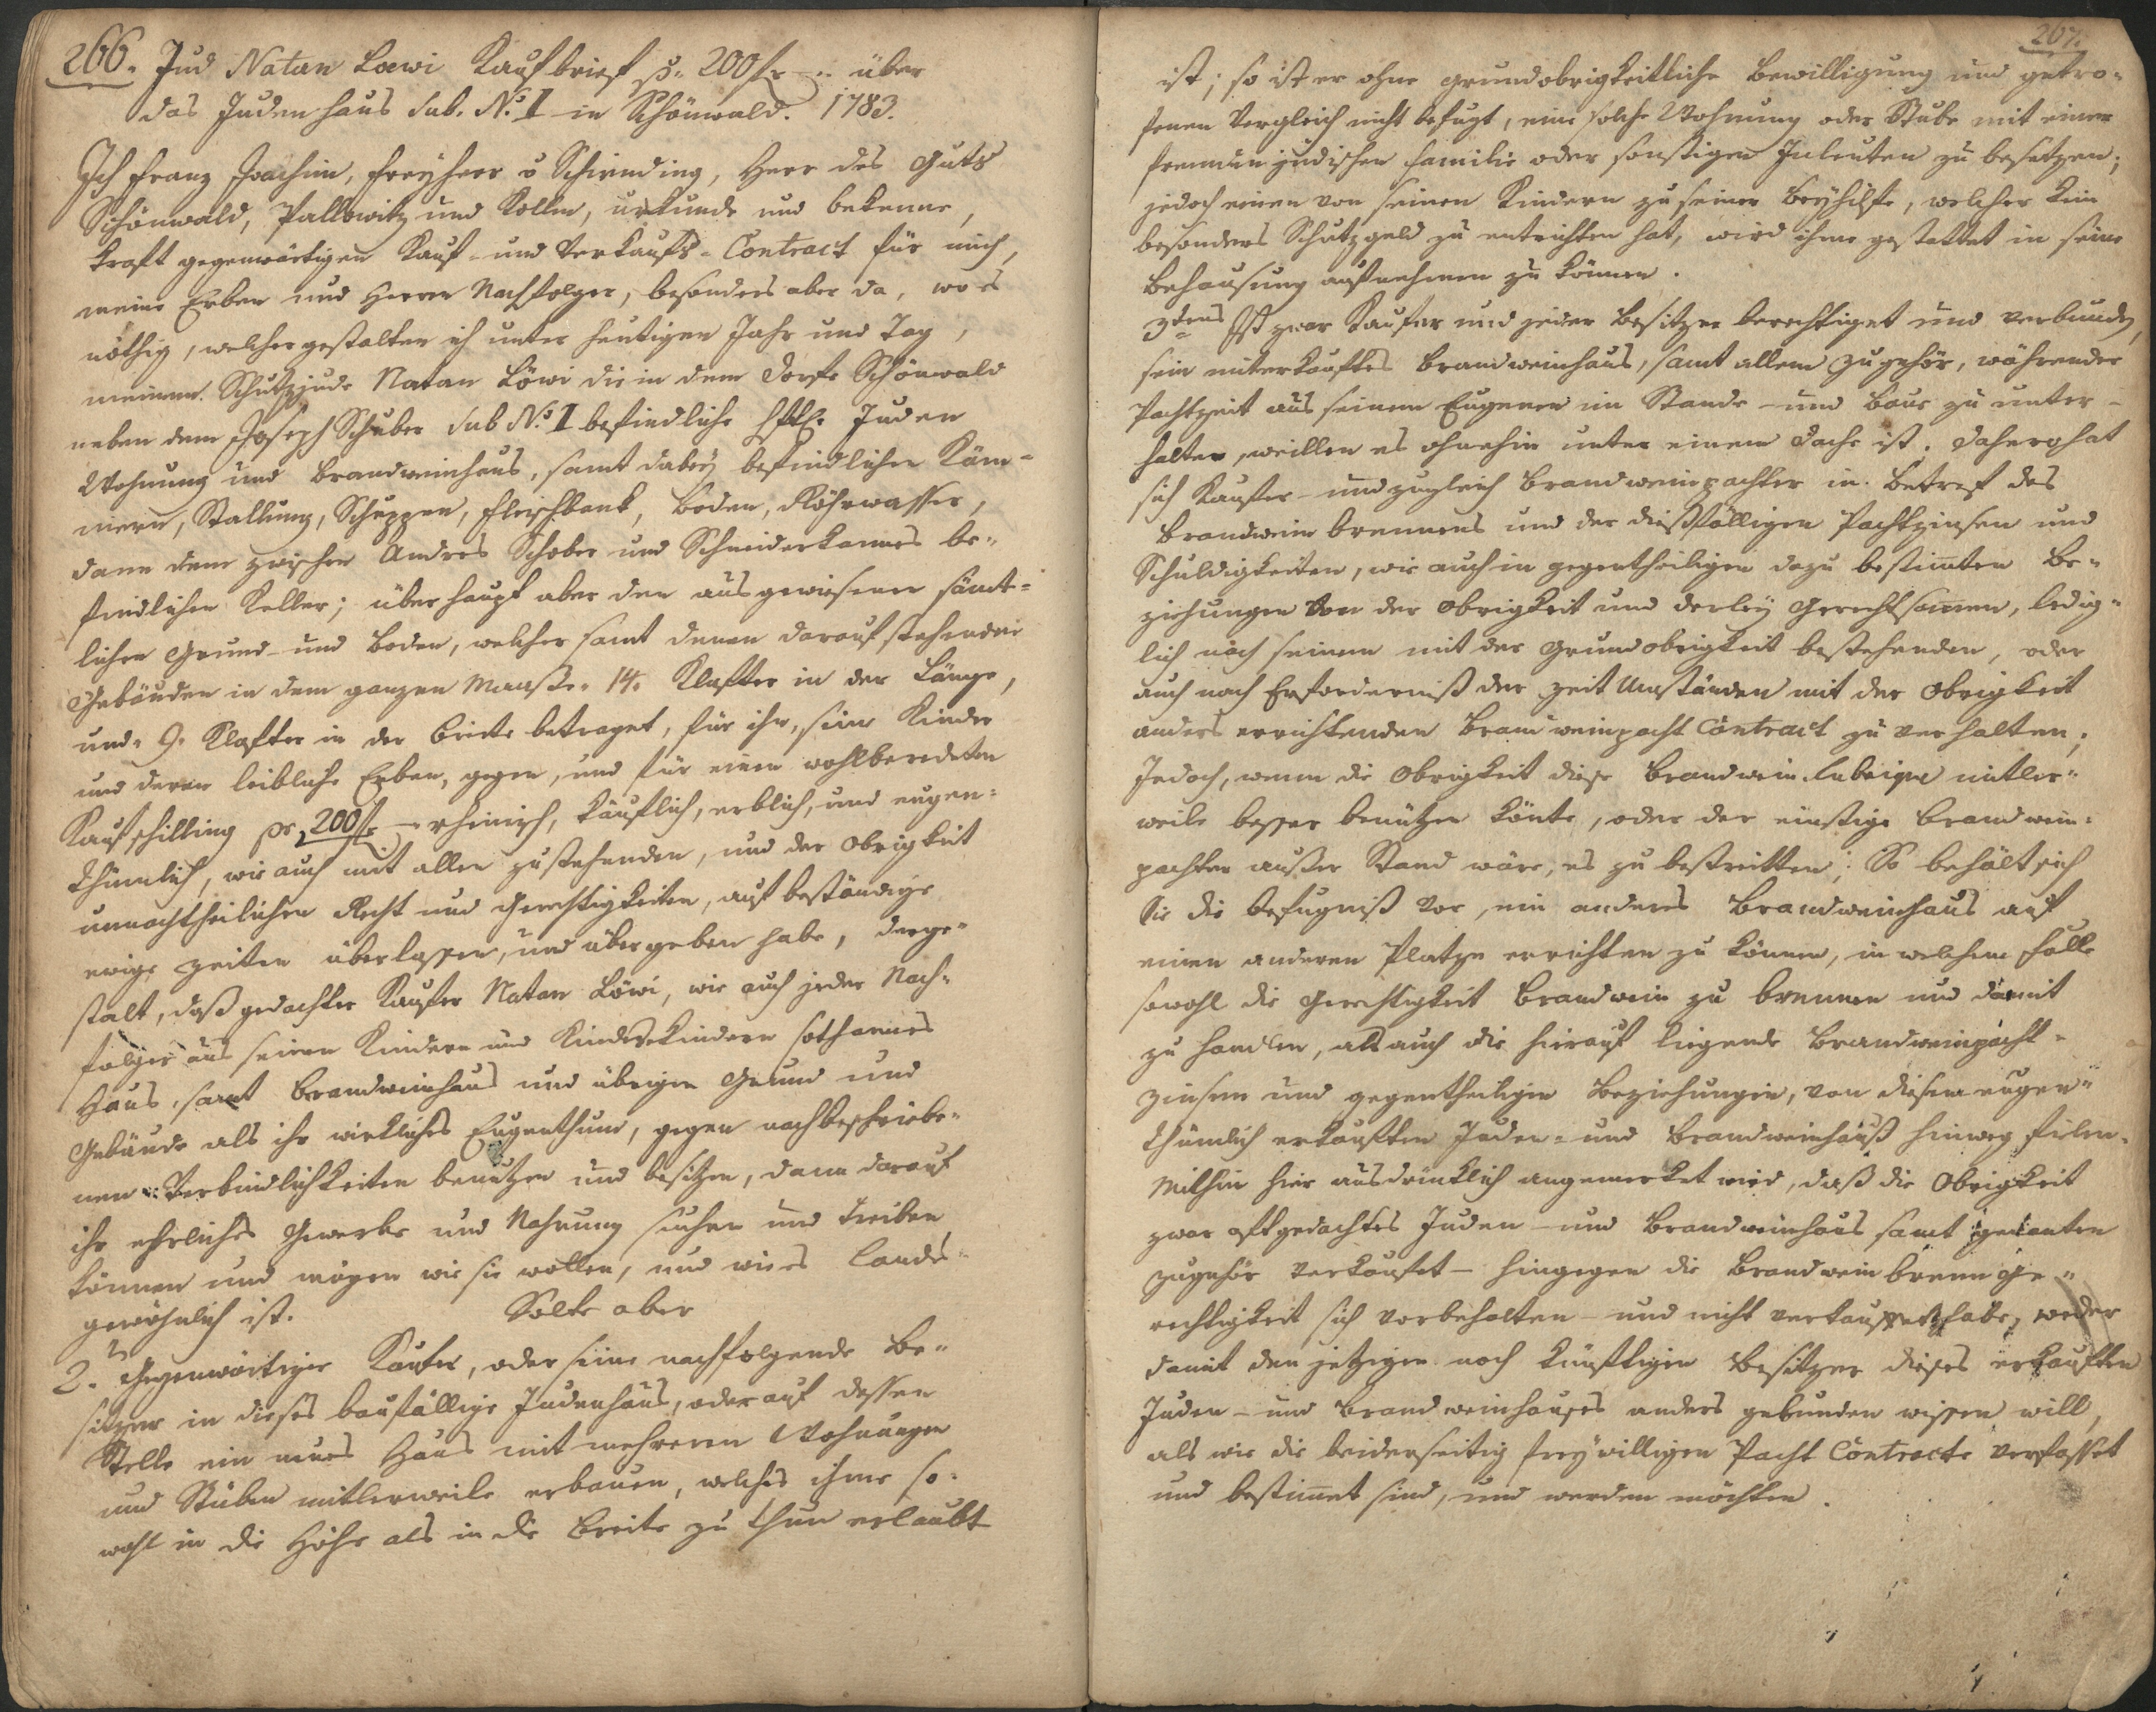 266. Jud Natan Loewi Kaufbrief p. 200 f. über
das Judenhaus sub. No. I in Schönwald. 1783.
Ich Franz Joachim, Freyherr v Schirnding, Herr des Guts
Schönwald, Pallowitz und Kollm, urkunde und bekenne,
kraft gegenwärtigen Kauf- und Verkaufs-Contract für mich,
meine Erben und Herren Nachfolger, besonders aber da, wo es
nöthig, welchergestalten ich unter heutigen Jahr und Tag,
meinem Schutzjude Natan Löwi die in dem Dorfe Schönwald
neben dem Joseph Schuber sub No. I befindliche Juden
Wohnung und Brandweinhaus, samt dabey befindlichen Kam-
mern, Stallung, Schuppen, Fleischbank, Boden, Röhrwasser,
dann dem zwischen Andres Schober und Schneiderhannes be-
findlichen Keller; überhaupt aber den ausgewiesenen sämt-
lichen Grund- und Boden, welcher samt denen darauf stehenden
Gebäuden in dem ganzen Maaße 14. Klafter in der Länge,
und 9. Klafter in der Breite betraget, für ihn, seine Kinder
und deren leibliche Erben, gegen, und für einen wohlberedeten
Kaufschilling pr 200 f. rheinisch, käuflich, erblich, und eugen-
thümlich, wie auch mit allen zustehenden, und der Obrigkeit
unnachtheilichen Recht und Gerechtigkeiten, auf beständige
ewige Zeiten überlassen, und übergeben habe, derge-
stalt, daß gedachter Kaufer Natan Löwi, wie auch jeder Nach-
folger aus seinen Kindern und Kindeskindern sothannes
Haus, samt Brandweinhaus und übrigen Grund und
Gebäude als ihr wirkliches Eugenthum, gegen nachbeschriebe-
nen Verbindlichkeiten benutzen und besitzen, dann darauf
ihr ehrliches Gewerbe und Nahrung suchen und treiben
können und mögen wie sie wollen, und wie es Landes
gewöhnlich ist. Solte aber
2. Gegenwärtiger Kaufer, oder seine nachfolgende Be-
sitzer in dieses baufällige Judenhaus, oder auf dessen
Stelle ein neues Haus mit mehreren Wohnungen
und Stuben mitlerweile erbauen, welches ihme so-
wohl in die Höhe als in die Breite zu thun erlaubt
267.
ist; so ist er ohne grundobrigkeitliche Bewilligung und getro-
fenen Vergleich nicht befugt, eine solche Wohnung oder Stube mit einer
fremden jüdischen Familie oder sonstigen Inleuten zu besetzen;
jedoch einen von seinen Kindern zu seiner Beyhilfe, welcher kein
besonders Schutzgeld zu entrichten hat, wird ihme gestattet in seine
Behausung aufnehmen zu können.
3tens Ist zwar Kaufer und jeder Besitzer berechtiget und verbunden,
sein miterkauftes Brandweinhaus, samt allem Zugehör, währender
Pachtzeit aus seinem Eugenen im Stande- und Baue zu unter-
halten, weillen es ohnehin unter einem Dache ist. Dahero hat
sich Kaufer- und zugleich Brandweinpachter in Betref des
Brandwein brennens und der dießfälligen Pachtzinsen und
Schuldigkeiten, wie auch in gegentheiligen dazu bestimten Be-
ziehungen von der Obrigkeit und derley Gerechtsamen, ledig-
lich nach seinem mit der Grundobrigkeit bestehenden, oder
auch nach Erforderniß der Zeit Umständen mit der Obrigkeit
anders errichtenden Brandweinpacht Contract zu verhalten;
Jedoch, wenn die Obrigkeit diese Brandwein mitler-
weile besser benützen könte, oder der einstige Brandwein-
pachter außer Stand wäre, es zu bestreitten; So behält sich
Sie die Befugniß vor, ein anderes Brandweinhaus auf
einen anderen Platze errichten zu können, in welchem Falle
sowohl die Gerechtigkeit Brandwein zu brennen und damit
zu handlen, als auch die hierauf liegende Brandweinpacht-
zinsen und gegentheiligen Beziehungen, von diesem eugen-
thümlich erkauften Juden- und Brandweinhauß hinweg fielen.
Mithin hier ausdrücklich angemerket wird, daß die Obrigkeit
zwar oftgedachtes Juden- und Brandweinhaus samt genanten
Zugehör verkaufet- hingegen die Brandwein brenn Ge-
rechtigkeit sich vorbehalten- und nicht verkaufet habe, weder
damit den jetzigen noch künftigen Besitzer dieses erkauften
Juden- und Brandweinhauses anders gebunden wissen will,
als wie die beiderseitig freywilligen Pacht Contracte verfasset
und bestimet sind, und werden möchten.